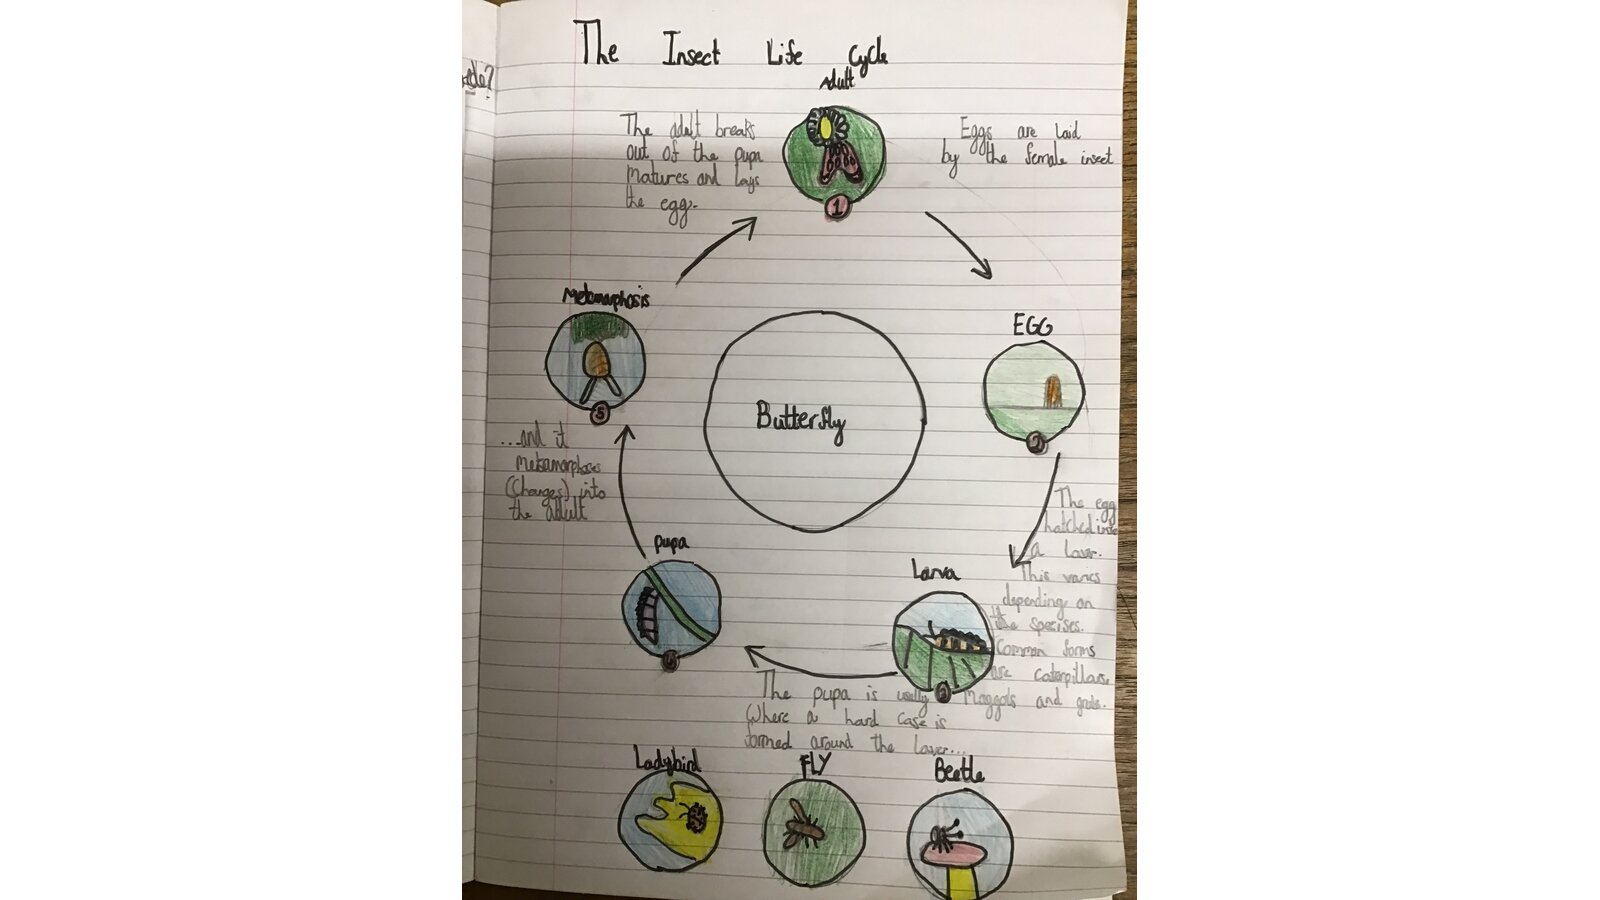 The Insect Life Cycle
Adult
The adult breaks
out of the pupa
matures and lays
the egg.
1
Eggs are laid
by the female insect
EGG
2
The egg
hatched into
a laver.
This varies
depending on
the specises.
Common forms
are caterpillars,
Maggots and grubs.
Larva
3
The pupa is usally
Where a hard case is
formed around the laver...
pupa
4
...and it
metamorphoses
(Changes) into
the adult
Metamorphosis
5
Butterfly
Ladybird
FLY
Beetle